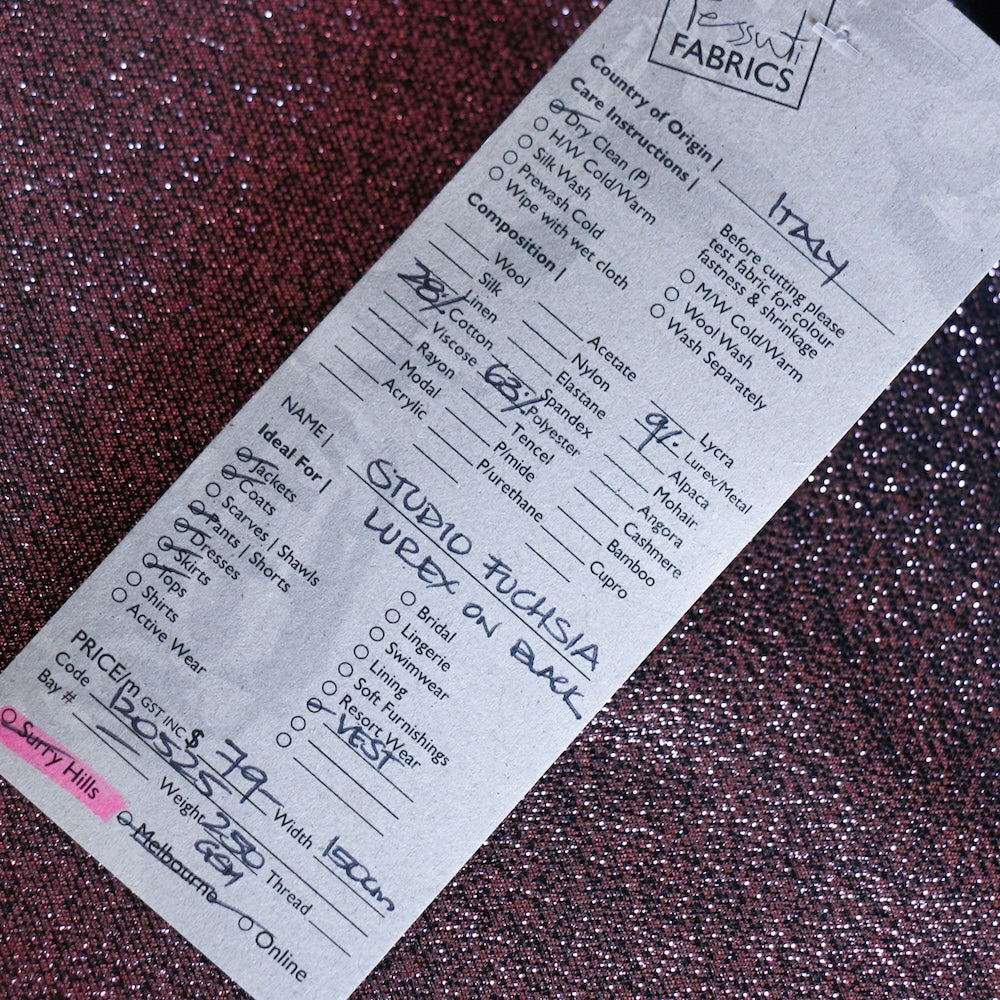 Tessuti
FABRICS
Country of Origin | ITALY
Care Instructions |
Dry Clean (P)
H/W Cold/Warm
Silk Wash
Prewash Cold
Wipe with wet cloth
Before cutting please
test fabric for colour
fastness & shrinkage
M/W Cold/Warm
Wool Wash
Wash Separately
Composition |
Wool
Silk
Linen
28% Cotton
Viscose
Rayon
Modal
Acrylic
Acetate
Nylon
Elastane
Spandex
63% Polyester
Tencel
P/mide
P/urethane
Lycra
9% Lurex/Metal
Alpaca
Mohair
Angora
Cashmere
Bamboo
Cupro
NAME | STUDIO FUCHSIA
LUREX ON BLACK
Ideal For |
Jackets
Coats
Scarves | Shawls
Pants | Shorts
Dresses
Skirts
Tops
Shirts
Active Wear
Bridal
Lingerie
Swimwear
Lining
Soft Furnishings
Resort Wear
VEST
PRICE/m GST INC $ 79- Width 150cm
Code 130525 Weight 250 GSM Thread
Bay #
Surry Hills
Melbourne
Online